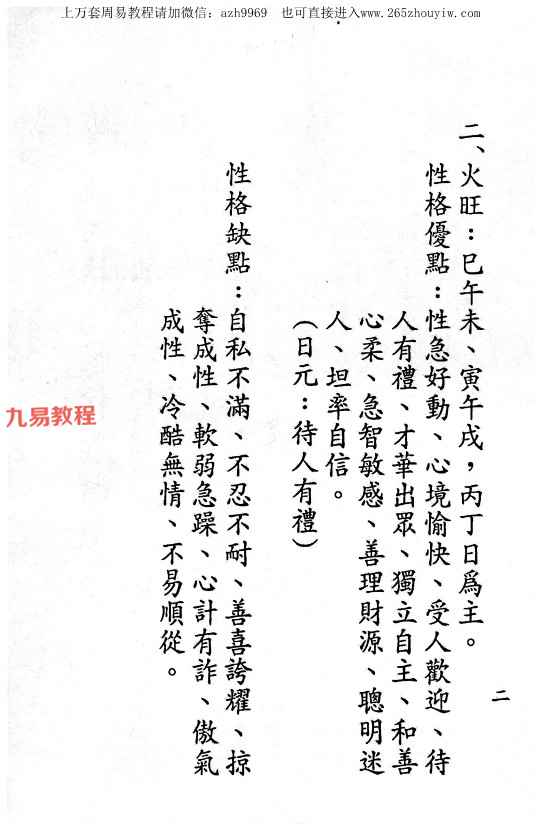 上万套周易教程请加微信：azh9969　也可直接进入www.265zhouyiw.com
二、火旺：巳午未、寅午戌，丙丁日爲主。
性格優點：性急好動、心境愉快、受人歡迎、待
人有禮、才華出眾、獨立自主、和善
心柔、急智敏感、善理財源、聰明迷
人、坦率自信。
（日元：待人有禮）
性格缺點：自私不滿、不忍不耐、善喜誇耀、掠
奪成性、軟弱急躁、心計有詐、傲氣
成性、冷酷無情、不易順從。
二
九易教程